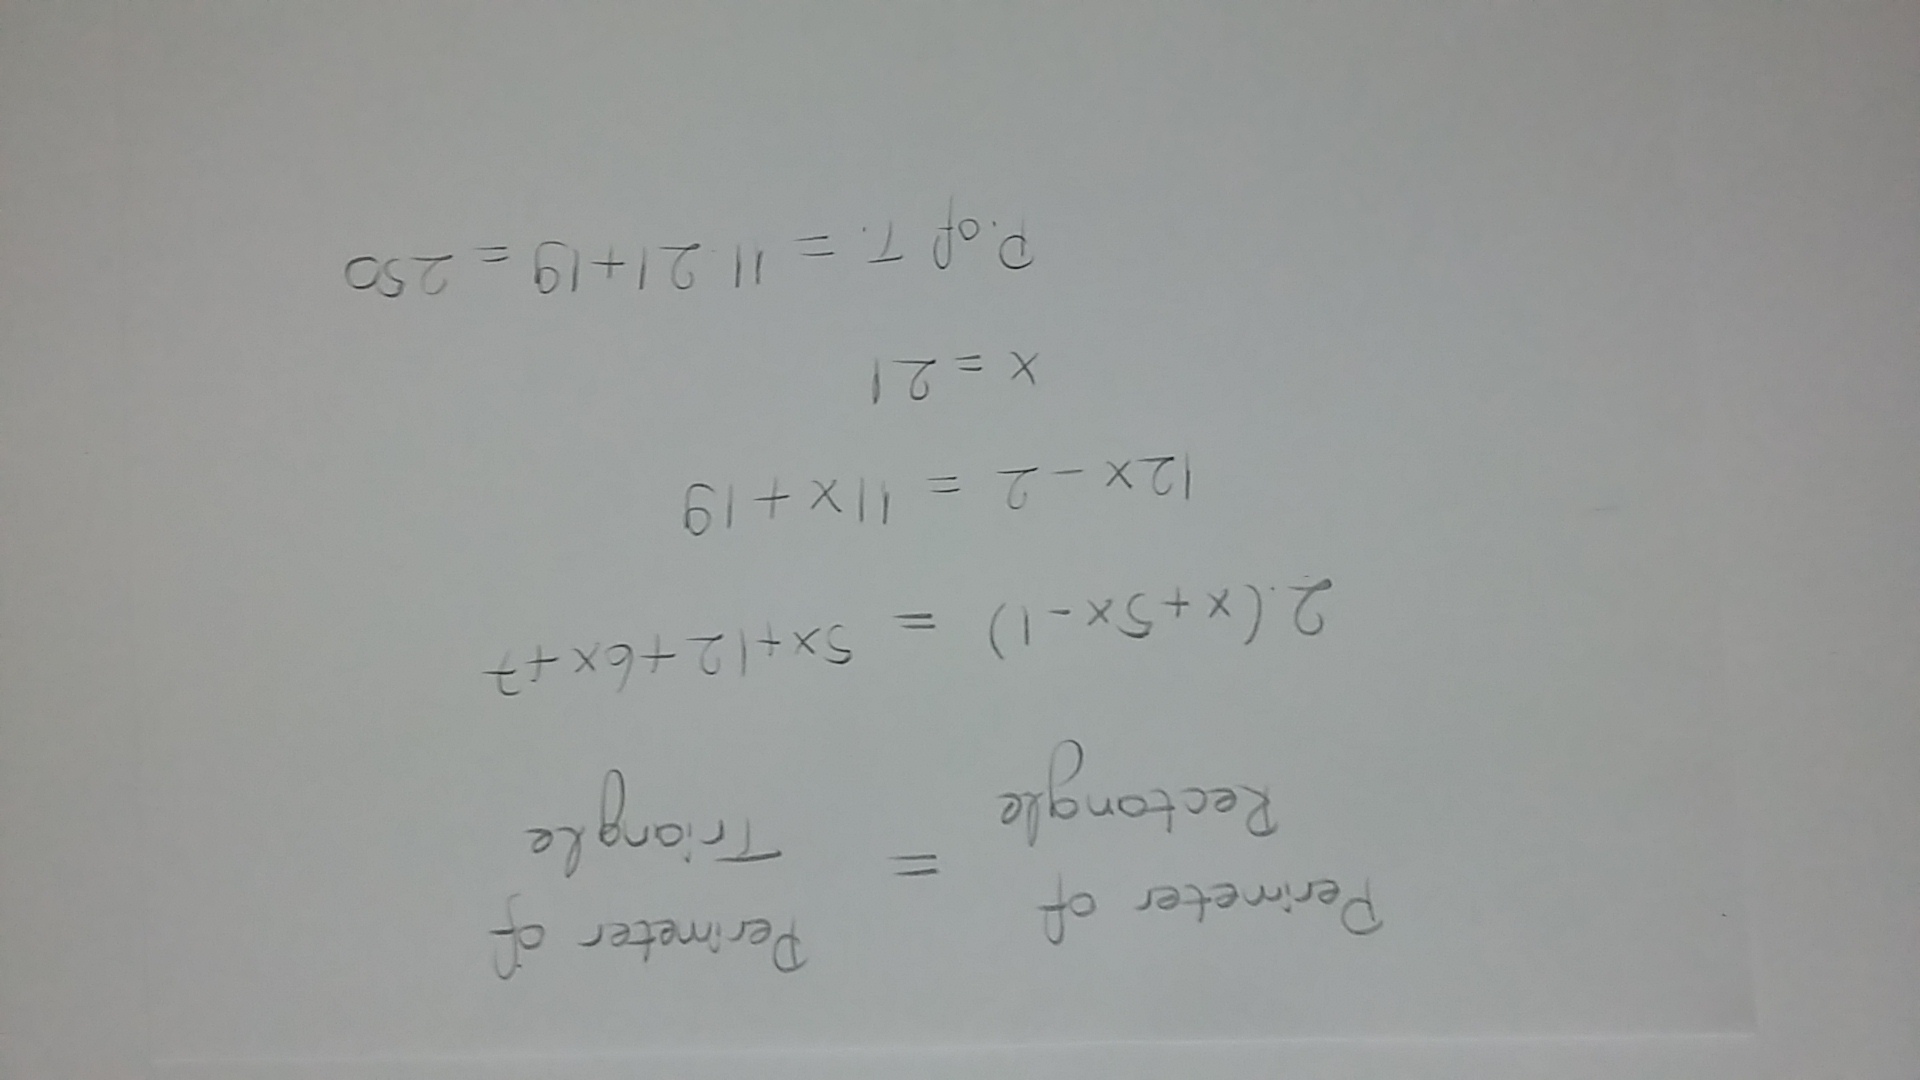 Perimeter of = Perimeter of
Rectangle Triangle
2.(x+5x-1) = 5x+12+6x+7
12x-2 = 11x+19
x = 21
P.of T. = 11.21+19 = 250